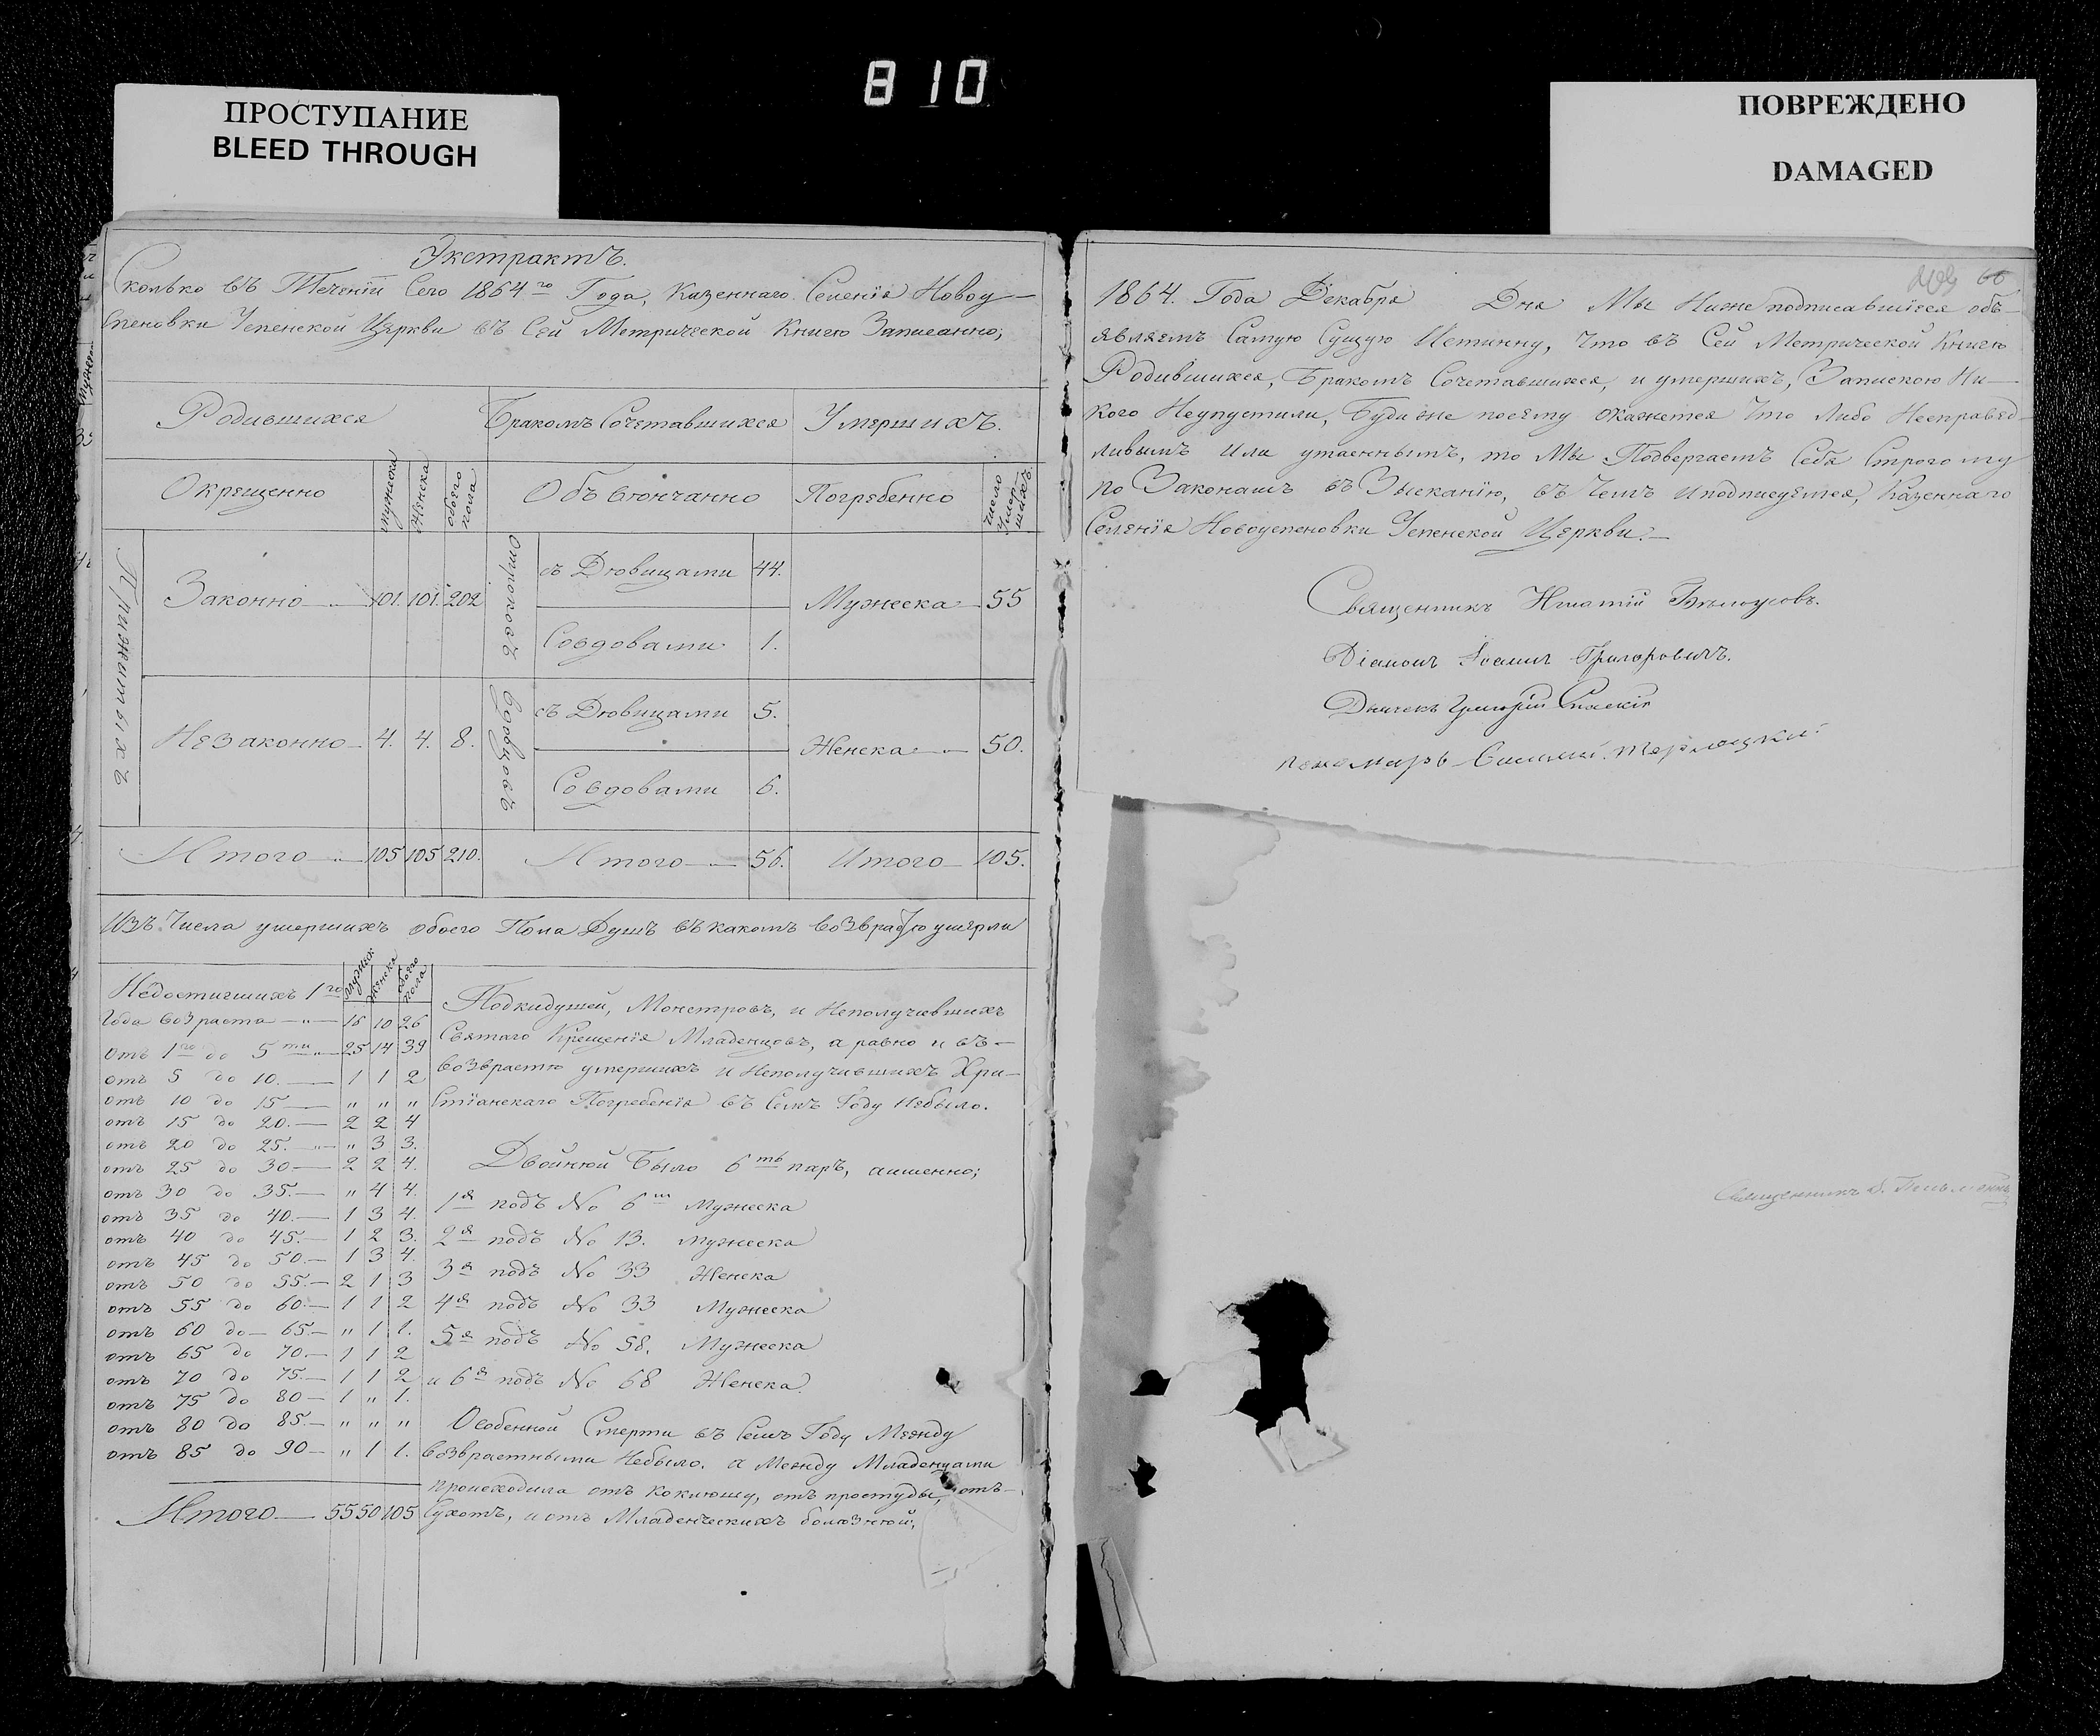 810
ПРОСТУПАНИЕ
BLEED THROUGH
ПОВРЕЖДЕНО
DAMAGED
Экстрактъ.
Сколько въ Теченіи Сего 1864го Года, Казеннаго Селенія Новоу—
спеновки Успенской Церкви въ Сей Метрической Книгѣ Записанно;
Родившихся
Бракомъ Сочетавшихся
Умершихъ.
Окрещенно
мужеска
женска
обоего пола
Объвѣнчанно
Погребенно
число умершихъ
Прижитыхъ
Законно 101. 101. 202
Отроковъ
съ Дѣвицами 44.
Совдовами 1.
Мужеска 55
Незаконно 4. 4. 8.
Вдовцовъ
съ Дѣвицами 5.
Совдовами 6.
Женска 50.
Итого 105 105 210.
Итого 56.
Итого 105.
Изъ Числа умершихъ обоего Пола Душъ въ какомъ возврастѣ умерли
мужеска
женска
обоего пола
Недостигшихъ 1го
Года возраста — " — 16 10 26
Отъ 1го до 5ти " — 25 14 39
отъ 5 до 10. — 1 1 2
отъ 10 до 15 — " " "
отъ 15 до 20. — 2 2 4
отъ 20 до 25. — " 3 3.
отъ 25 до 30 — 2 2 4.
отъ 30 до 35. — " 4 4.
отъ 35 до 40. — 1 3 4.
отъ 40 до 45. — 1 2 3.
отъ 45 до 50. — 1 3 4.
отъ 50 до 55. — 2 1 3
отъ 55 до 60. — 1 1 2
отъ 60 до 65. — " 1 1.
отъ 65 до 70. — 1 1 2
отъ 70 до 75. — 1 1 2
отъ 75 до 80 — 1 " 1.
отъ 80 до 85. — " " "
отъ 85 до 90 — " 1 1.
Итого — 55 50 105
Подкидушей, Монстровъ, и Неполучившихъ
Святаго Крещенія Младенцовъ, а равно и въ —
возврастѣ умершихъ и Неполучившихъ Хри—
стіанскаго Погребенія въ Семъ Году Небыло.
Двойнюй Было 6ть паръ, аименно;
1я подъ No 6 Мужеска
2я подъ No 13. Мужеска
3я подъ No 33 Женска
4я подъ No 33 Мужеска
5я подъ No 58. Мужеска
и 6я подъ No 68 Женска.
Особенной Смерти въ Семъ Году Между
возврастными Небыло. а Между Младенцами
происходила отъ коклюшу, отъ простуды, отъ —
Сухотъ, и отъ Младенческихъ болѣзнюй;
66
1864. Года Декабря Дня Мы Ниже подписавшіеся объ—
являемъ Самую Сущую Истинну, Что въ Сей Метрической Книгѣ
Родившихся, Бракомъ Сочетавшихся, и умершихъ, Запискою Ни—
кого Неупустили, Буди же посему окажется Что Либо Несправед—
ливымъ Или утаеннымъ, то Мы Подвергаемъ Себя Строгому
по Законамъ въ Зысканію, въ Чемъ и подписуемся, Казеннаго
Селенія Новоуспеновки Успенской Церкви. —
Священникъ Игнатій Бѣлоусовъ.
Діаконъ Іоаннъ Григоровичъ.
Дьячекъ Григорій Спаскій
пономарь Терлецкий.
Священникъ